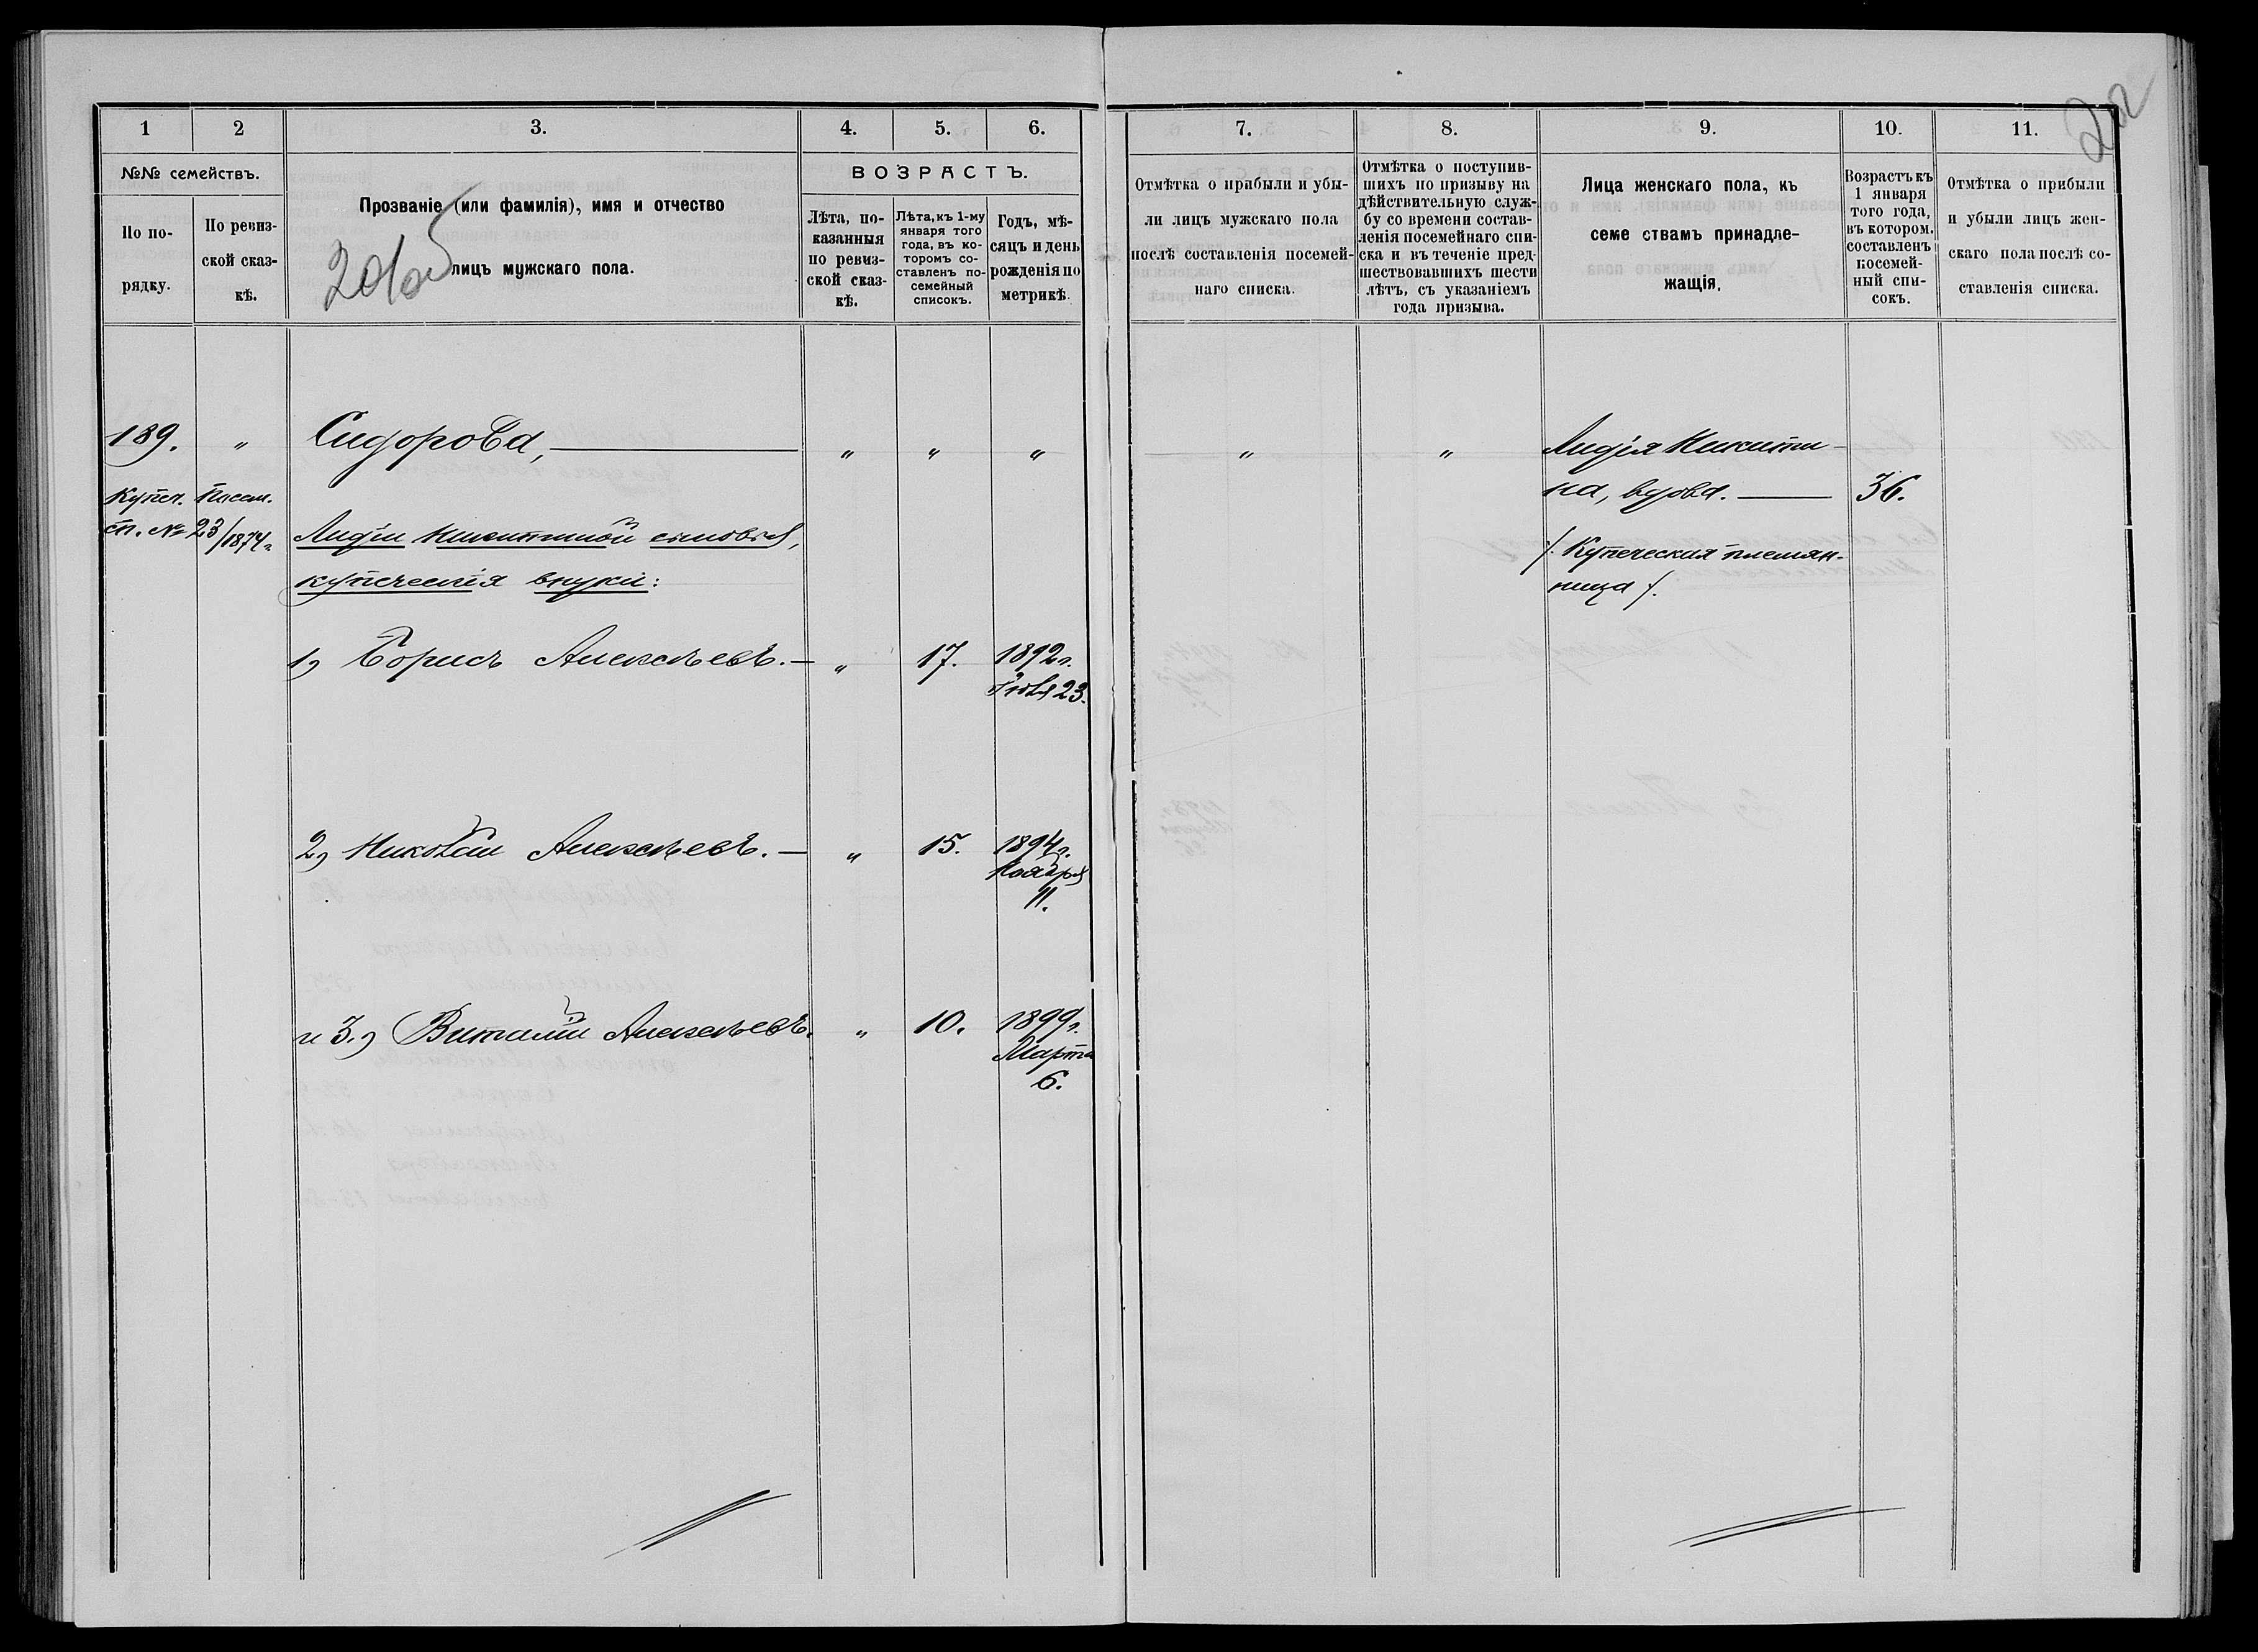 1
2
3.
4.
5.
6.
№№ семействъ.
ВОЗРАСТЪ.
По по-
рядку.
По ревиз-
ской сказ-
кѣ.
Прозваніе (или фамилія), имя и отчество
лицъ мужскаго пола.
Лѣта, по-
казанныя
по ревиз-
ской сказ-
кѣ.
Лѣта, къ 1-му
января того
года, въ ко-
торомъ со-
ставленъ по-
семейный
списокъ.
Годъ, мѣ-
сяцъ и день
рожденія по
метрикѣ
189. " Сидорова, " " "
Купеч. Посем.
сп. № 23/1874 г.
Лидіи Никитиной сыновья,
купеческія внуки:
1) Борисъ Алексѣевъ. " 17. 1892 г.
Іюля 23.
2) Николай Алексѣевъ. " 15. 1894 г.
Ноября
11.
и 3.) Виталій Алексѣевъ. " 10. 1899 г.
Марта
6.
7.
8.
9.
10.
11.
Отмѣтка о прибыли и убы-
ли лицъ мужскаго пола
послѣ составленія посемей-
наго списка.
Отмѣтка о поступив-
шихъ по призыву на
дѣйствительную служ-
бу со времени состав-
ленія посемейнаго спи-
ска и въ теченіе пред-
шествовавшихъ шести
лѣтъ, съ указаніемъ
года призыва.
Лица женскаго пола, къ
семе ствамъ принадле-
жащія.
Возрастъ къ
1 января
того года,
въ котором.
составленъ
посемей-
ный спи-
сокъ.
Отмѣтка о прибыли
и убыли лицъ жен-
скаго пола послѣ со-
ставленія списка.
" " Лидія Никити-
на, вдова. 36.
/. Купеческая племян-
ница /.